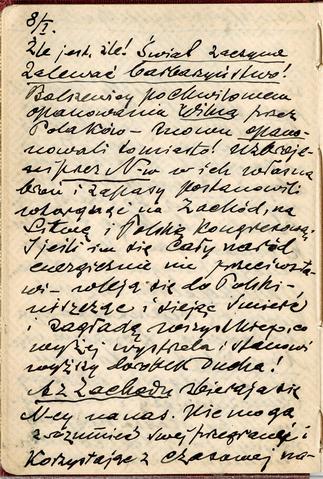 8/I.
Źle jest. Źle! Świat zaczyna
zalewać barbarzyństwo!
Bolszewicy po chwilowem
opanowaniu Wilna przez
Polaków – znowu opano-
nowali to miasto! Uzbroje-
ni przez N-ów w ich własną
broń i zapasy postanowili
wtargnąć na Zachód, na
Litwę i Polskę kongresową.
I jeśli im się cały naród
energicznie nie przeciwsta-
wi – wleją się do Polski –
niszcząc i siejąc śmierć
i zagładę wszystkiego, co
wyżej wystrzela i stanowi
wyższy dorobek Ducha!
A z Zachodu zbierają się
N-cy na nas. Nie mogą
zrozumieć swej przegranej i
korzystając z czasowej na-